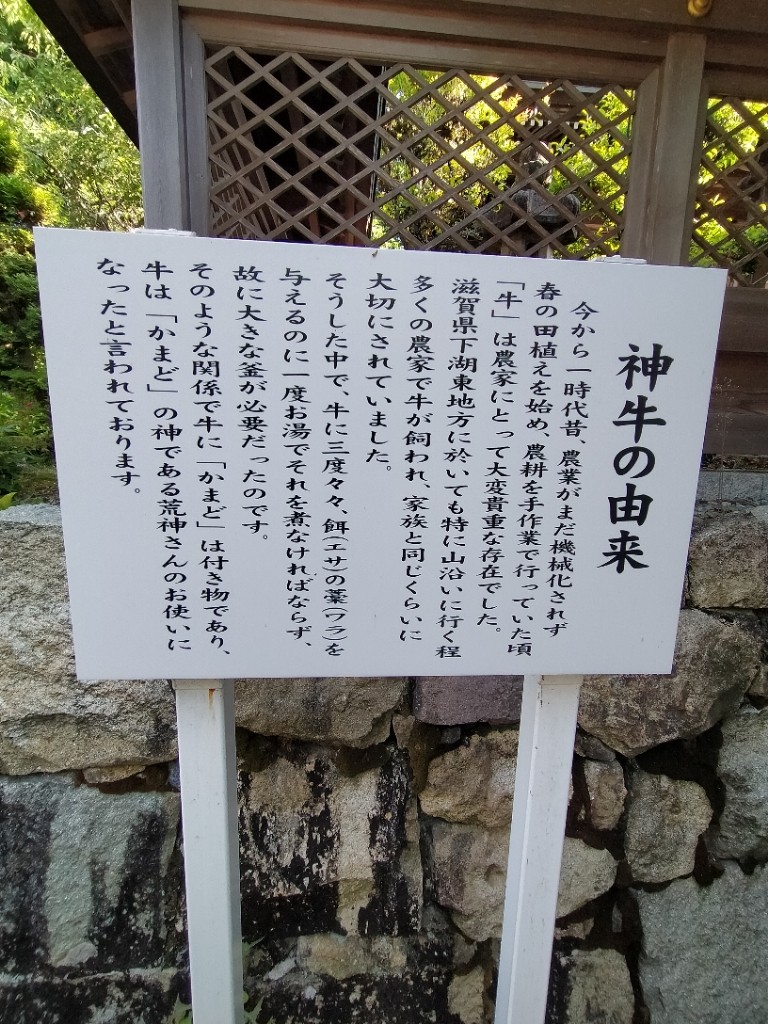 神牛の由来
今から一時代昔、農業がまだ機械化されず
春の田植えを始め、農耕を手作業で行っていた頃
「牛」は農家にとって大変貴重な存在でした。
滋賀県下湖東地方に於いても特に山沿いに行く程
多くの農家で牛が飼われ、家族と同じくらいに
大切にされていました。
そうした中で、牛に三度々々、餌(エサ)の藁(ワラ)を
与えるのに一度お湯でそれを煮なければならず、
故に大きな釜が必要だったのです。
そのような関係で牛に「かまど」は付き物であり、
牛は「かまど」の神である荒神さんのお使いに
なったと言われております。